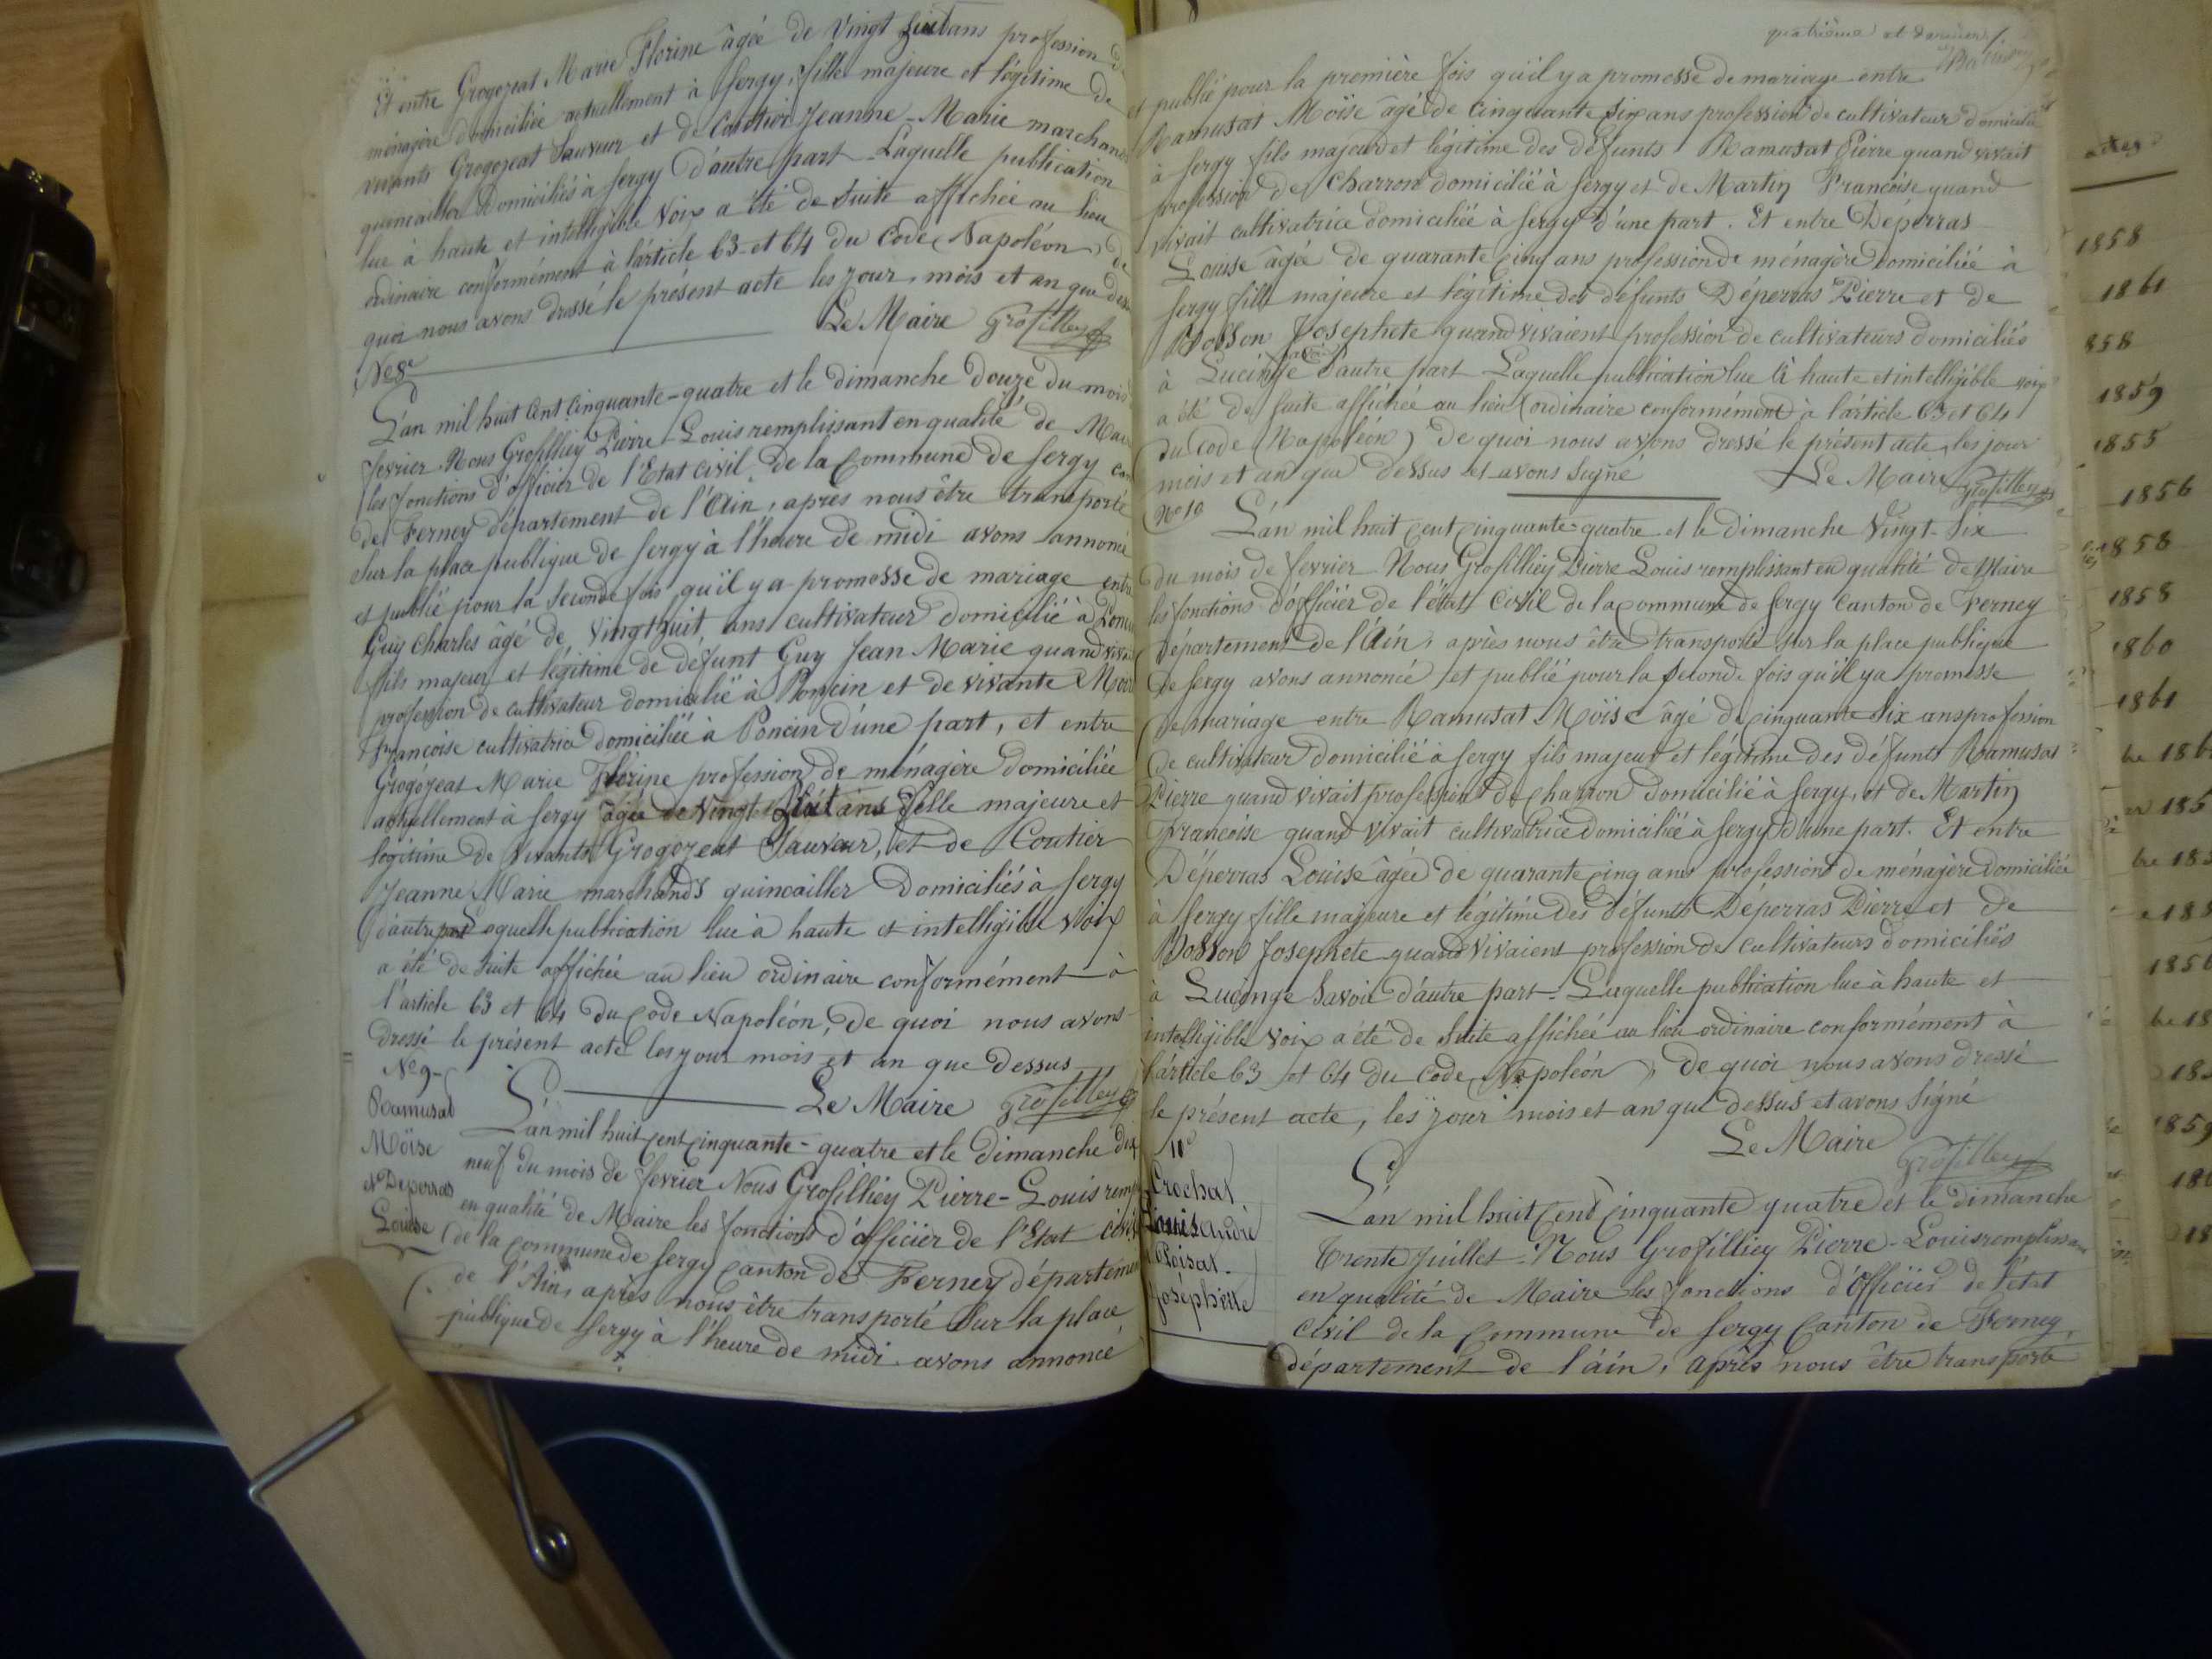 Et entre Grogozeat Marie Florine âgée de vingt huit ans profession de
ménagère domiciliée actuellement à Sergy, fille majeure et légitime de
vivants Grogozeat Sauveur et de Coutier Jeanne-Marie marchands
quincailler domiciliés à Sergy d'autre part - Laquelle publication
lue à haute et intelligible voix a été de suite affichée au lieu
ordinaire conformément à l'article 63 et 64 du Code Napoléon, de
quoi nous avons dressé le présent acte les jour, mois et an que dessus
Le Maire Grosfilley
No 8e
L'an mil huit cent cinquante-quatre et le dimanche douze du mois
fevrier Nous Grosfilliey Pierre-Louis remplissant en qualité de Maire
les fonctions d'officier de l'Etat civil de la Commune de Sergy can
de Ferney département de l'Ain, après nous être transporté
sur la place publique de Sergy à l'heure de midi avons annoncé
et publié pour la seconde fois qu'il y a promesse de mariage entre
Guy Charles âgé de vingt huit ans cultivateur domicilié à Poncin
fils majeur et légitime de défunt Guy Jean Marie quand vivait
profession de cultivateur domicilié à Poncin et de vivante
Françoise cultivatrice domiciliée à Poncin d'une part, et entre
Grogozeat Marie Florine profession de ménagère domiciliée
actuellement à Sergy âgée de vingt huit ans fille majeure et
légitime de vivants Grogozeat Sauveur, et de Coutier
Jeanne Marie marchands quincailler domiciliés à Sergy
d'autre part Laquelle publication lue à haute et intelligible voix
a été de suite affichée au lieu ordinaire conformément à
l'article 63 et 64 du Code Napoléon, de quoi nous avons
dressé le présent acte les jour mois et an que dessus
Le Maire Grosfilley
No 9
Ramusat
Moïse
et Deperras
Louise
L'an mil huit cent cinquante-quatre et le dimanche dix
neuf du mois de fevrier Nous Grosfilliéy Pierre-Louis remp
en qualité de Maire les fonctions d'officier de l'Etat civil
de la Commune de Sergy Canton de Ferney département
de l'Ain, après nous être transporté sur la place
publique de Sergy à l'heure de midi avons annoncé
quatrième et dernier f.
et publié pour la première fois qu'il y a promesse de mariage entre
Ramusat Moïse âgé de cinquante six ans profession de cultivateur domicilié
à Sergy fils majeur et légitime des défunts Ramusat Pierre quand vivait
profession de Charron domicilié à Sergy et de Martin Françoise quand
vivait cultivatrice domiciliée à Sergy d'une part. Et entre Déperras
Louise âgée de quarante cinq ans profession de ménagère domiciliée à
Sergy fille majeure et légitime des défunts Déperras Pierre et de
Bosson Josephete quand vivaient profession de cultivateurs domiciliés
à Lucinge Savoie d'autre part Laquelle publication lue à haute et intelligible voix
a été de suite affichée au lieu ordinaire conformément à l'article 63 et 64
du Code Napoléon, de quoi nous avons dressé le présent acte, les jour
mois et an que dessus et avons signé Le Maire Grosfilley
No 10
L'an mil huit cent cinquante-quatre et le dimanche vingt-six
du mois de fevrier Nous Grosfilliéy Pierre Louis remplissant en qualité de Maire
les fonctions d'officier de l'état civil de la commune de Sergy Canton de Ferney
département de l'Ain, après nous être transporté sur la place publique
de Sergy avons annoncé et publié pour la seconde fois qu'il y a promesse
de mariage entre Ramusat Moïse âgé de cinquante six ans profession
de cultivateur domicilié à Sergy fils majeur et légitime des défunts Ramusat
Pierre quand vivait profession de charron domicilié à Sergy, et de Martin
Françoise quand vivait cultivatrice domiciliée à Sergy d'une part. Et entre
Déperras Louise âgée de quarante cinq ans profession de ménagère domiciliée
à Sergy fille majeure et légitime des défunts Déperras Pierre et de
Bosson Josephete quand vivaient profession de cultivateurs domiciliés
à Lucinge Savoie d'autre part - Laquelle publication lue à haute et
intelligible voix a été de suite affichée au lieu ordinaire conformément à
l'article 63 et 64 du Code Napoléon, de quoi nous avons dressé
le présent acte, les jour mois et an que dessus et avons signé
Le Maire Grosfilley
11e
Crochat
Louis André
Poisat
Joséphette
L'an mil huit cent cinquante quatre et le dimanche
trente juillet - Nous Grosfilliey Pierre-Louis remplissant
en qualité de Maire les fonctions d'officier de l'état
civil de la Commune de Sergy Canton de Ferney,
département de l'ain, après nous être transporté
actes
1858
1861
858
1859
1855
1856
1858
1858
1860
1861